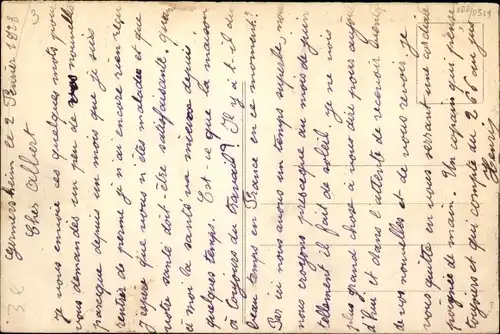 Germersheim le 2 Février 1928
Cher Albert
je vous envoie ces quelques mots pour
vous demander un peu de vos nouvelles
parceque depuis un mois que je suis
rentrer de perme j'ai encore rien reçu
j'espère que vous n'êtes malades et que
votre santé doit-être satisfaisante. quand
à moi la santé va mieux depuis
quelques temps. Est-ce que la maison
à toujours du travail? Il y a t-il du
beau temps en France en ce moment?
Par ici nous avons un temps superbe nous
nous croyons presceque au mois de juin
tellement il fait de soleil. je ne vois
plus grand chose à vous dire pour aujour
d'hui et dans l'attente de recevoir bientôt
vos nouvelles et de vous revoir je
vous quitte en vous serrant une cordiale
poignée de main. Un copain qui pense
toujours et qui compte du 265 au jus
Henri
3 €